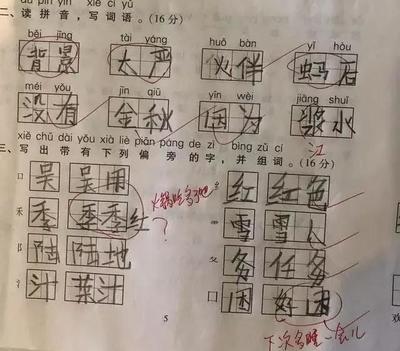 dú pīn yīn xiě cí yǔ
二、读拼音,写词语。(16 分)
bèi jǐng tài yáng huǒ bàn yǐ hòu
背景 太严 伙伴 蚂后
méi yǒu jīn qiū yīn wèi jiāng shuǐ
没有 金秋 因为 浆水
江
xiě chū dài yǒu xià liè piān páng de zì bìng zǔ cí
三、写出带有下列偏旁的字,并组词。(16 分)
口 吴 吴用 纟 红 红色
火锅吃多了吧?
禾 季 季季红 雪 雪人
阝 陆 陆地 夂 务 任务
氵 汁 菜汁 囗 困 好困
下次多睡一会儿
5